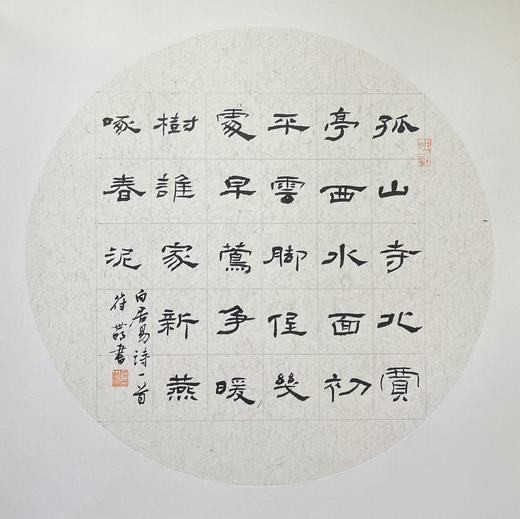 孤山寺北賈
亭西水面初
平雲脚低幾
處早鶯争暖
樹誰家新燕
啄春泥
白居易诗一首
符書